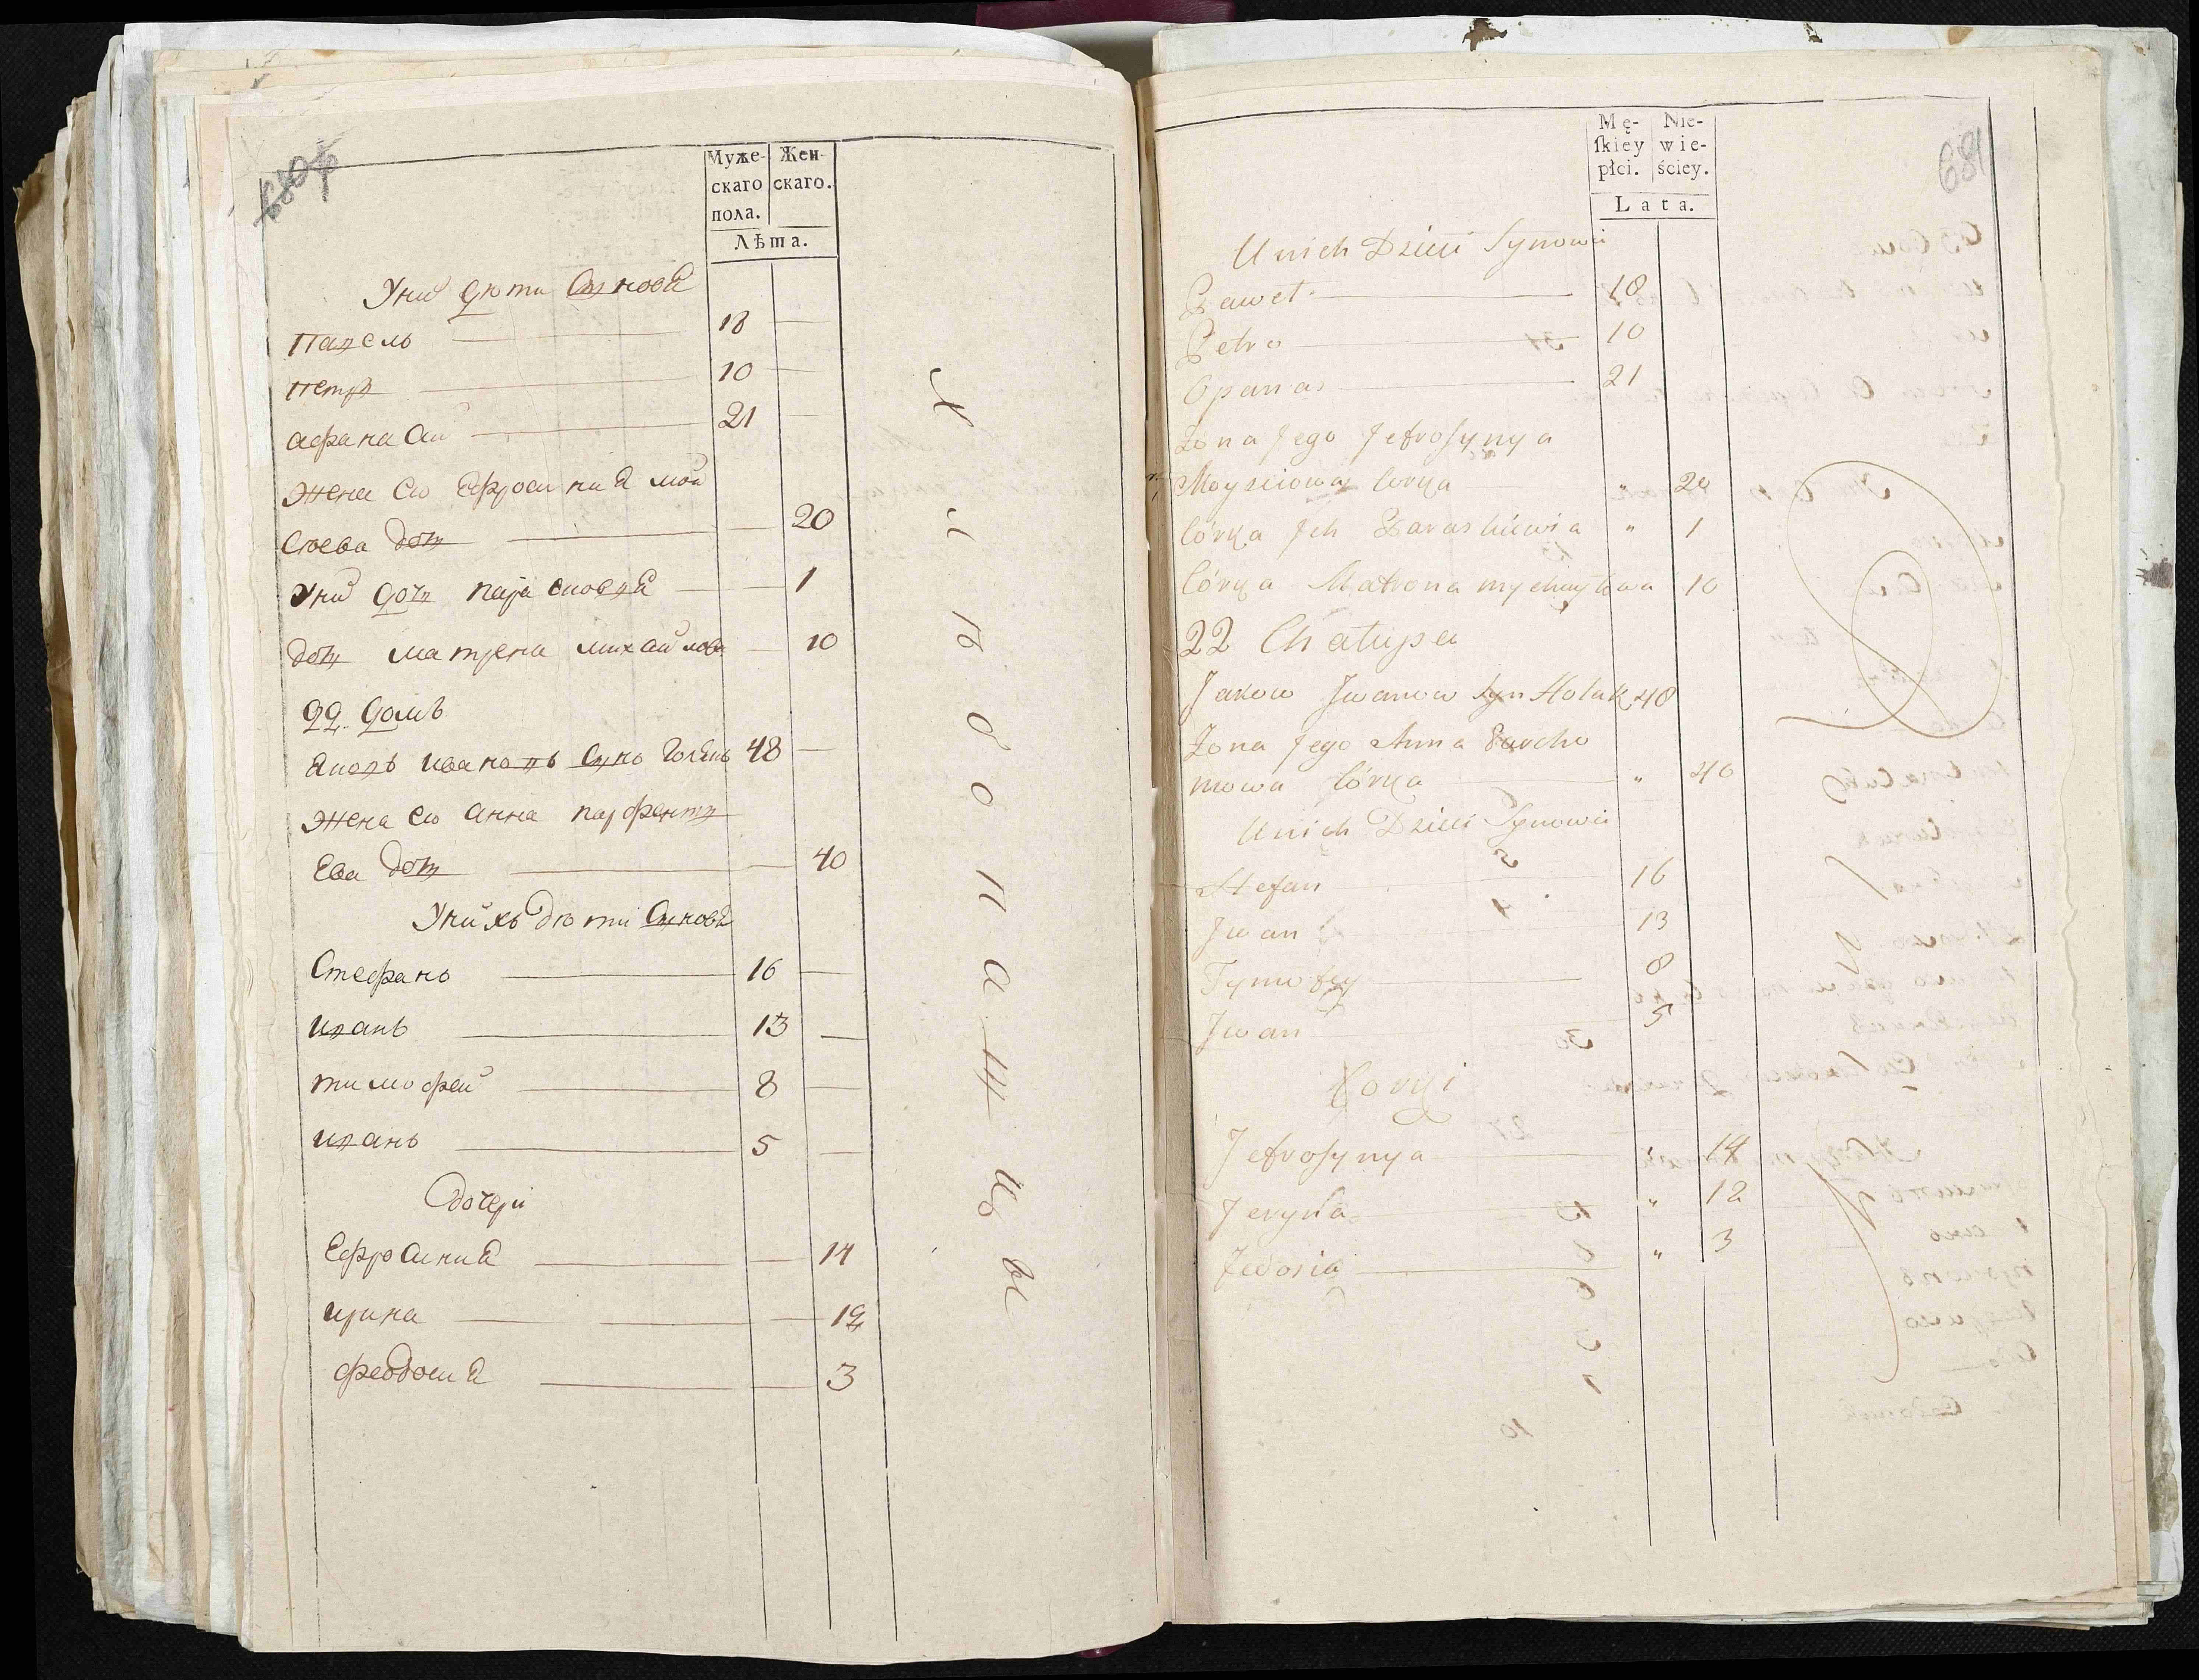 Муже-
скаго
пола.
Жен-
скаго.
Лѣта.
У них дѣти сынове
Павелъ 18
Петръ 10
Афанасий 21
Жена его Ефросиния Мой
сѣева дочь 20
У них дочь Парасковия 1
дочь Матрена Михайлова 10
22. Домъ
Яковъ Ивановъ сынъ 48
Жена его Анна Парфентъ
ева дочь 40
У нихъ дѣти сынове
Стефанъ 16
Иванъ 13
Тимофей 8
Иванъ 5
Дочери
Ефросиния 14
Ирина 12
Феодосия 3
Хлѣбопашцы
681
Mę-
ſkiey
płci.
Nie-
wie-
ściey.
Lata.
U nich Dzieci Synowie
Paweł 18
Petro 10
Opanas 21
Żona Jego Jefrosynya
Moysiiowa Córka " 20
Córka Ich Paraskiewia " 1
Córka Matrona Mychayłowa 10
22 Chałupa
Jakow Iwanow Syn Holak 48
Żona Jego Anna Parcho
mowa Córka " 40
U nich Dzieci Synowie
Stefan 16
Jwan 13
Tymofiy 8
Jwan 5
Córki
Jefrosynya " 14
Jeryna " 12
Fedosia " 3